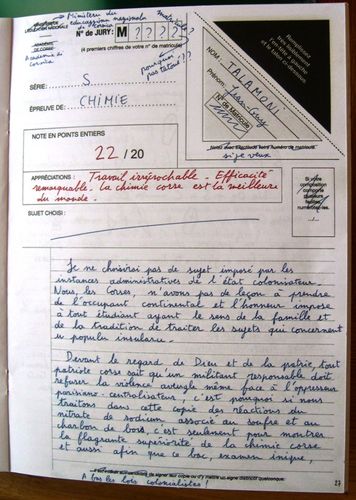 Ministeru di
educazione naziunale
di Corsica
ACADÉMIE
DE CORSE
Academia di
Corsica
N° de JURY : M ? ? ? ?
(4 premiers chiffres de votre n° de matricule)
pourquoi
pas tatoué ??
SÉRIE : S
ÉPREUVE DE : CHIMIE
Nom TALAMONI
Prénom Jean-Guy
N° de Matricule
si je veux
Remplissez
très lisiblement
en tête à gauche
et le talon ci-dessus
NOTE EN POINTS ENTIERS
22 / 20
APPRÉCIATIONS : Travail irréprochable - Efficacité
remarquable - la chimie corse est la meilleure
du monde -
SUJET CHOISI :
Si votre
composition
comporte
plusieurs
numérotez-les.
Je ne choisirai pas de sujet imposé par les
instances administratives de l'état colonisateur.
Nous, les Corses, n'avons pas de leçon à prendre
de l'occupant continental et l'honneur impose
à tout étudiant ayant le sens de la famille et
de la tradition de traiter les sujets qui concernent
u populu insularu.
Devant le regard de Dieu et de la patrie, tout
patriote corse sait qu'un militant responsable doit
refuser la violence aveugle même face à l'oppresseur
parisiano-centralisateur ; c'est pourquoi si nous
traitons dans cette copie des réactions du
nitrate de sodium associé au soufre et au
charbon de bois, c'est seulement pour montrer
la flagrante supériorité de la chimie corse
et aussi afin que ce bac, examen inique,
A bas les lois colonialistes !
27